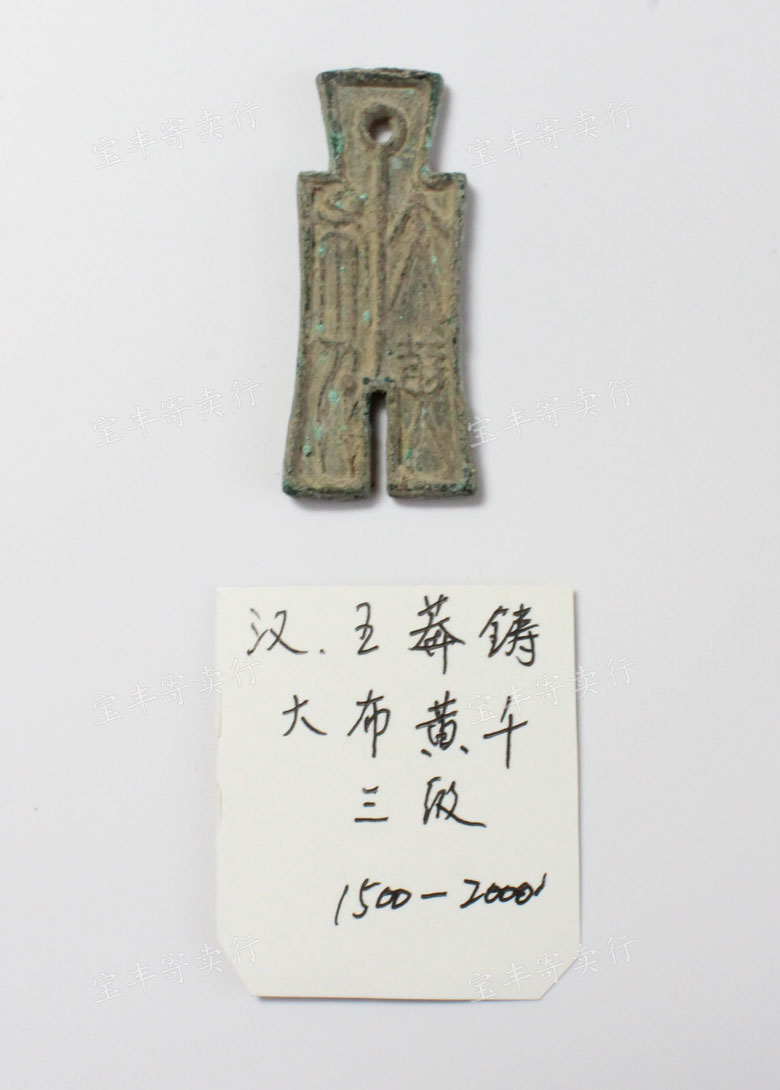 宝丰寄卖行
宝丰寄卖行
大布黄千
宝丰寄卖行
宝丰寄卖行
汉.王莽铸
大布黄千
三级
1500-2000
宝丰寄卖行
宝丰寄卖行
宝丰寄卖行
宝丰寄卖行